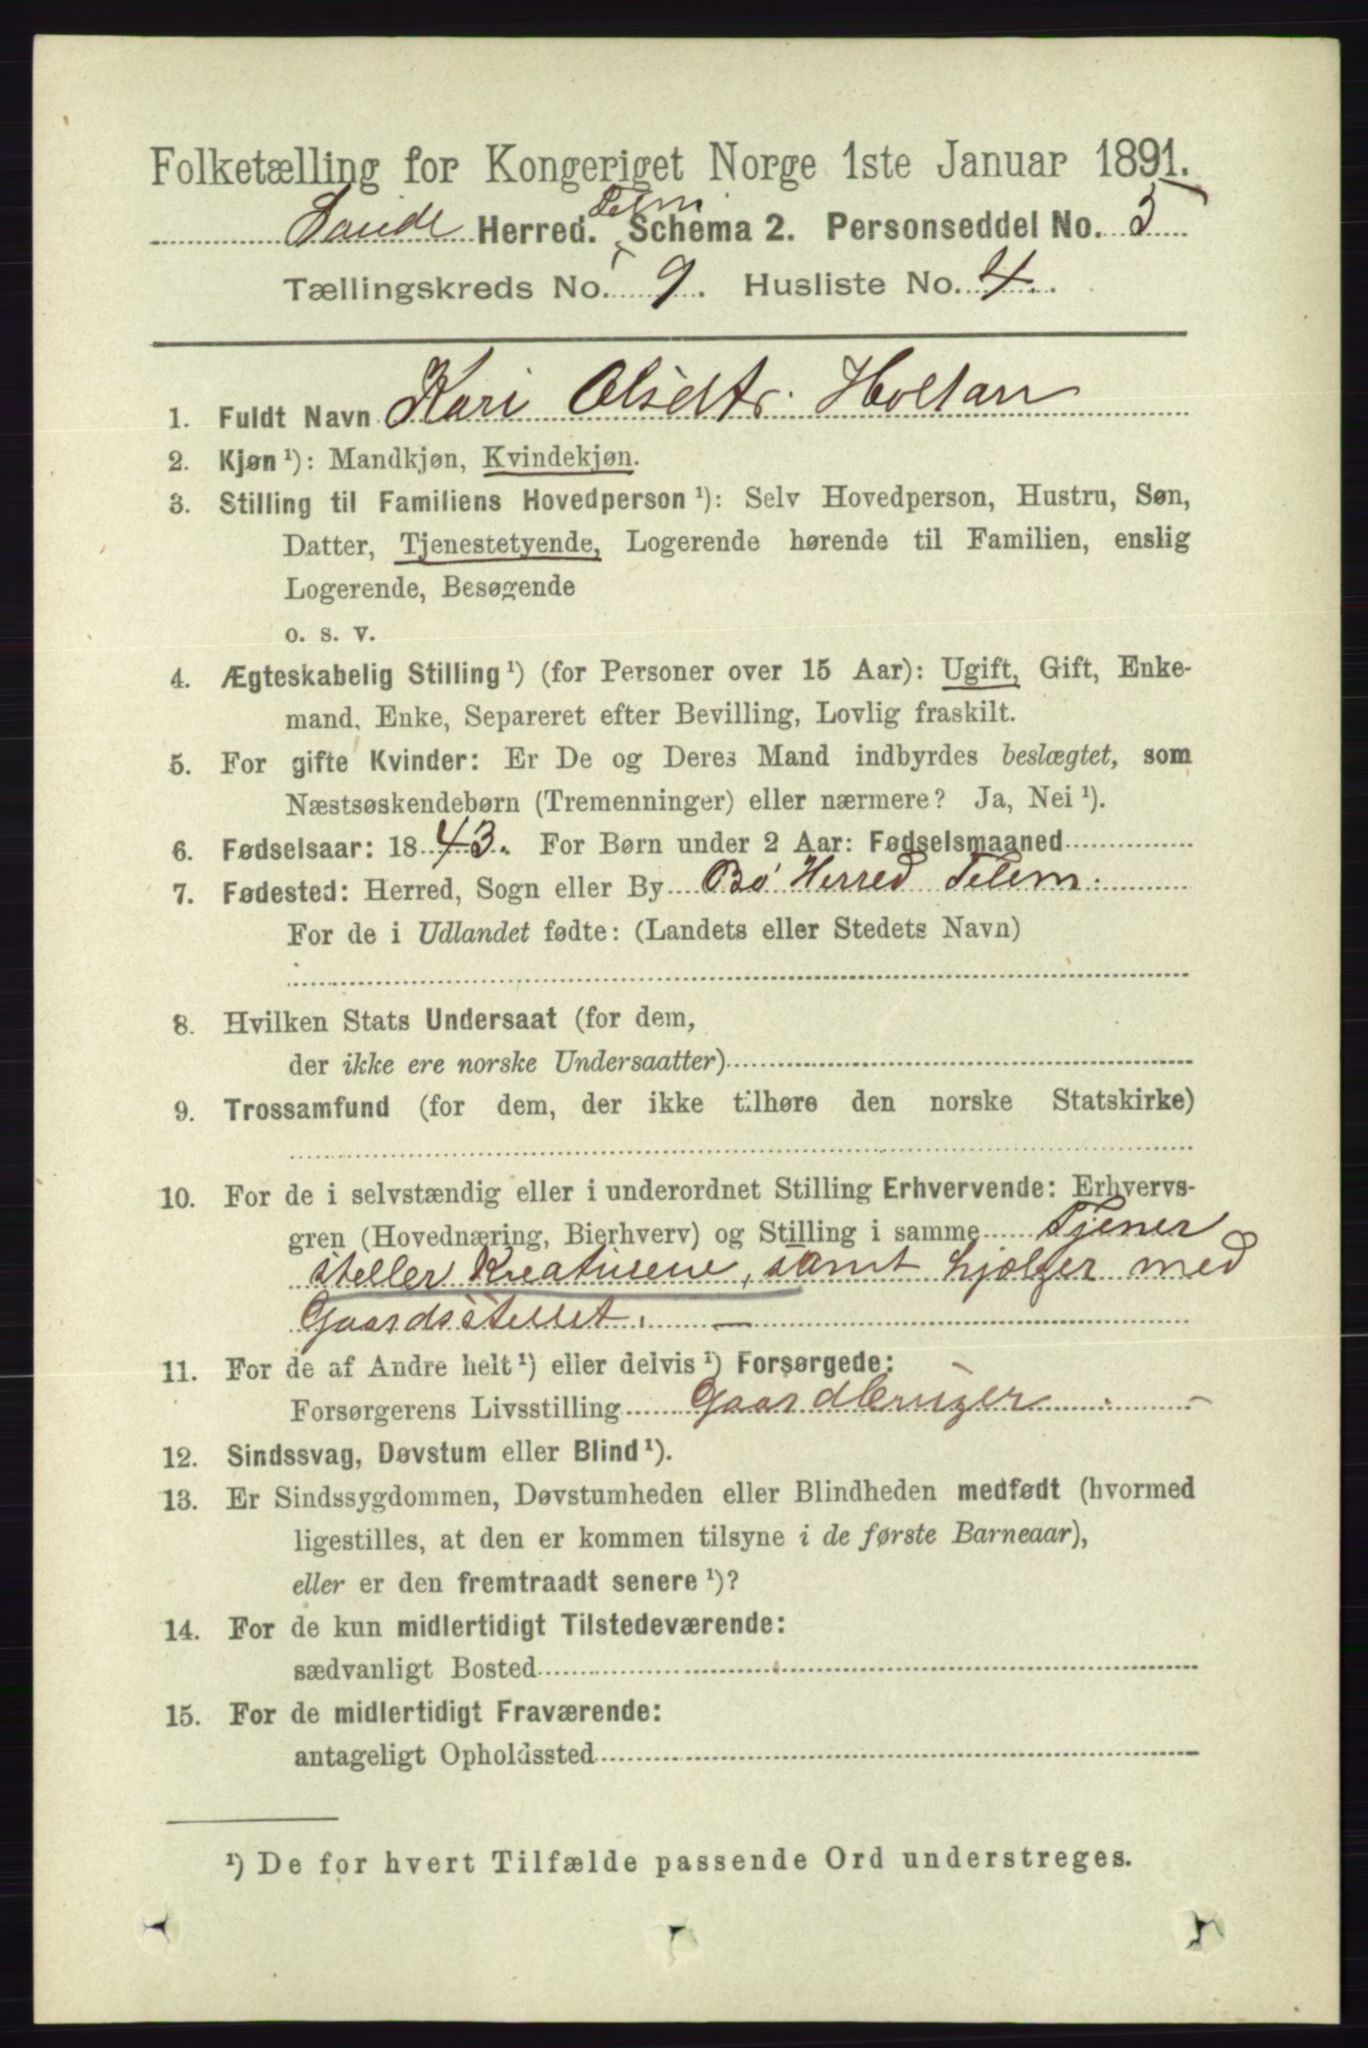 Folketælling for Kongeriget Norge 1ste Januar 1891.
Saude Herred. Telm. Schema 2. Personseddel No. 5
Tællingskreds No. 9. Husliste No. 4.
1. Fuldt Navn Kari Olsdtr. Holtan
2. Kjøn ¹): Mandkjøn, Kvindekjøn.
3. Stilling til Familiens Hovedperson ¹): Selv Hovedperson, Hustru, Søn,
Datter, Tjenestetyende, Logerende hørende til Familien, enslig
Logerende, Besøgende
o. s. v.
4. Ægteskabelig Stilling ¹) (for Personer over 15 Aar): Ugift, Gift, Enke-
mand, Enke, Separeret efter Bevilling, Lovlig fraskilt.
5. For gifte Kvinder: Er De og Deres Mand indbyrdes beslægtet, som
Næstsøskendebørn (Tremenninger) eller nærmere? Ja, Nei ¹).
6. Fødselsaar: 1843. For Børn under 2 Aar: Fødselsmaaned
7. Fødested: Herred, Sogn eller By Bø Herred Telem.
For de i Udlandet fødte: (Landets eller Stedets Navn)
8. Hvilken Stats Undersaat (for dem,
der ikke ere norske Undersaatter)
9. Trossamfund (for dem, der ikke tilhøre den norske Statskirke)
10. For de i selvstændig eller i underordnet Stilling Erhvervende: Erhvervs-
gren (Hovednæring, Bierhverv) og Stilling i samme Tjener
steller Kreaturene, samt hjælper med
Gaardsstellet. —
11. For de af Andre helt ¹) eller delvis ¹) Forsørgede:
Forsørgerens Livsstilling Gaardbruger. —
12. Sindssvag, Døvstum eller Blind ¹).
13. Er Sindssygdommen, Døvstumheden eller Blindheden medfødt (hvormed
ligestilles, at den er kommen tilsyne i de første Barneaar),
eller er den fremtraadt senere ¹)?
14. For de kun midlertidigt Tilstedeværende:
sædvanligt Bosted
15. For de midlertidigt Fraværende:
antageligt Opholdssted
¹) De for hvert Tilfælde passende Ord understreges.